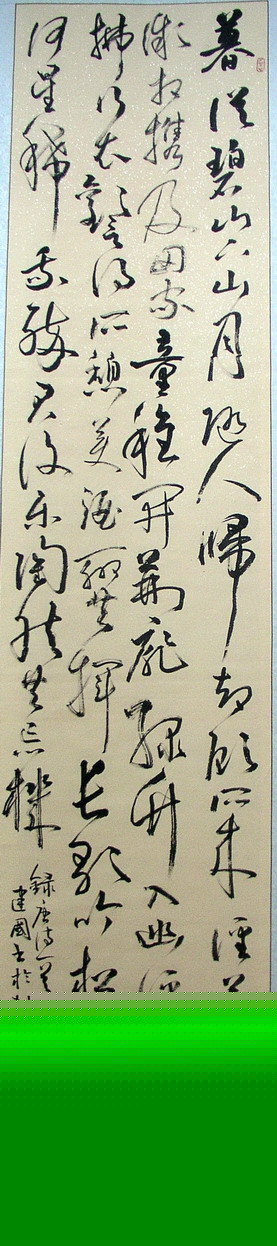 暮從碧山下山月隨人歸却顧所來徑
微相攜及田家童稚開荊扉綠竹入幽徑
拂行衣歡言得所憩美酒聊共揮長歌吟松
河星稀我醉君復樂陶然共忘機
錄唐詩一首
建國書於